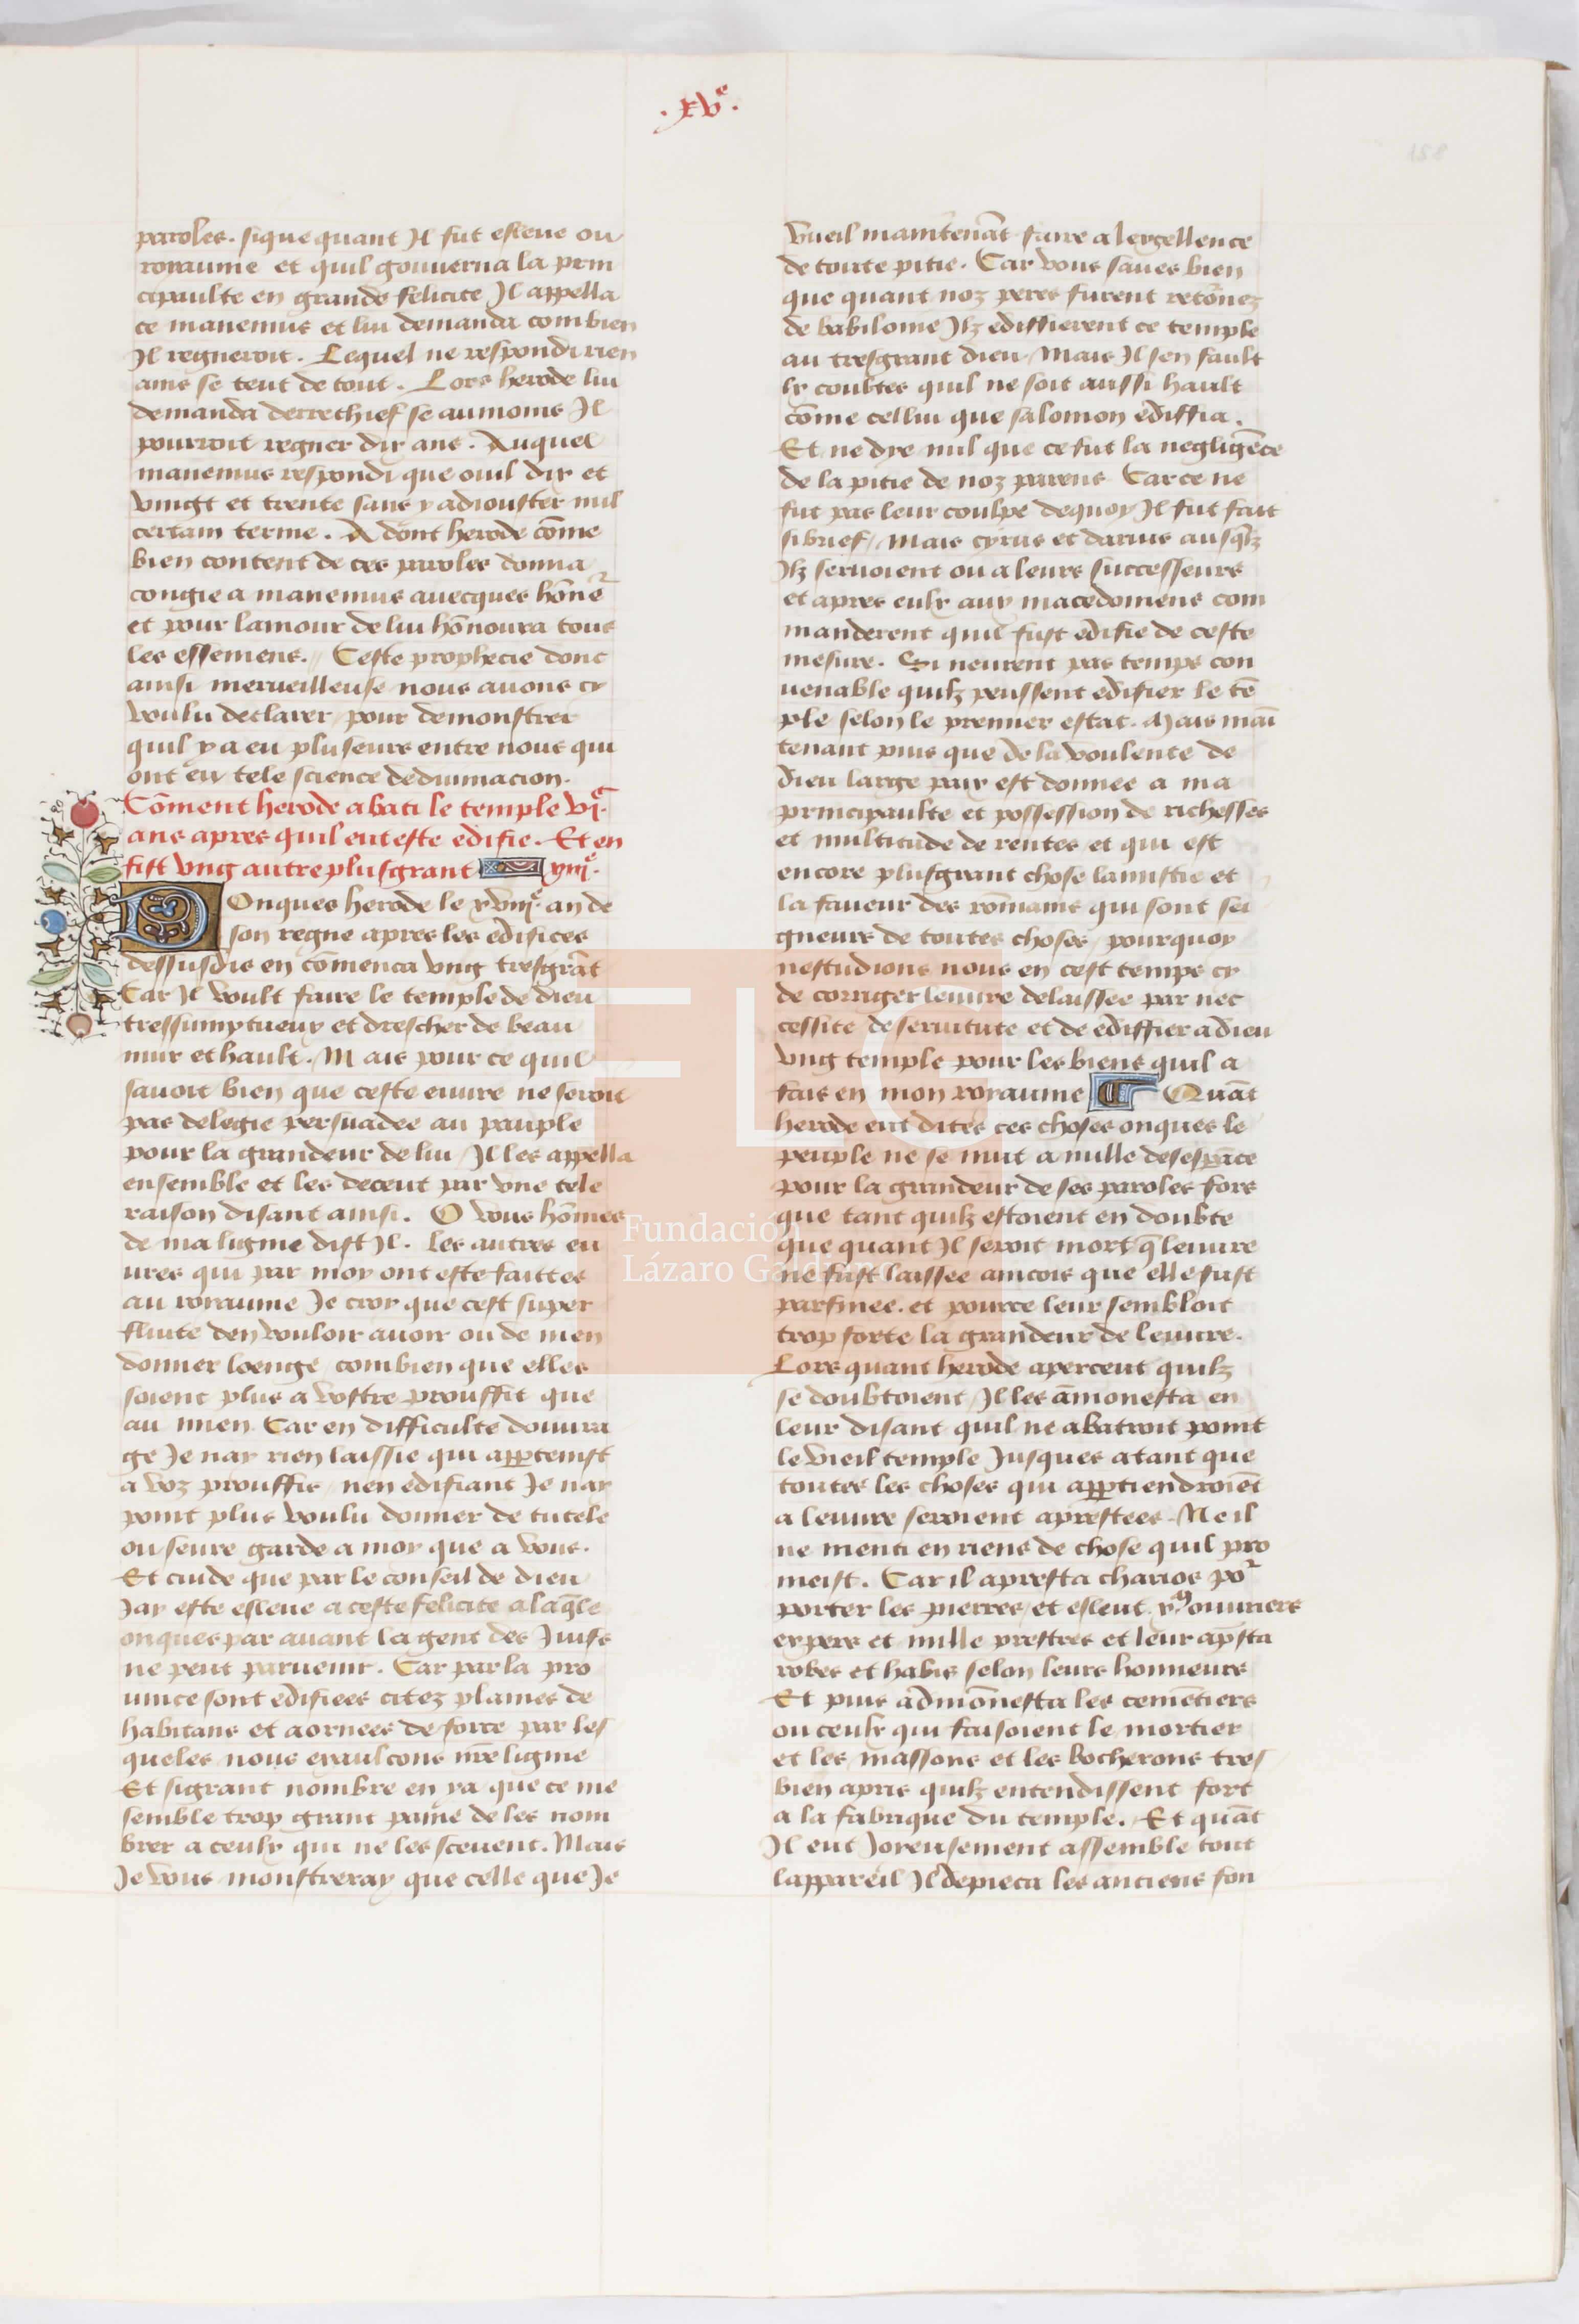 .xvᵉ.
158
paroles. sique quant Il fut esleue ou
royaume et quil gouuerna la prin
cipaulte en grande felicite Il appella
ce manemus et lui demanda combien
Il regneroit. Lequel ne respondi rien
ains se teut de tout. Lors herode lui
demanda derrechief se aumoins Il
pourroit regner dix ans. Auquel
manemus respondi que ouil dix et
vingt et trente sans y adiouster nul
certain terme. A dont herode cōme
bien content de ces paroles donna
congie a manemus auecques hōneʳ
et pour lamour de lui hōnoura tous
les essemens. Ceste prophecie donc
ainsi merueilleuse nous auons cy
voulu declairer pour demonstrer
quil y a eu pluseurs entre nous qui
ont eu tele science dediuinacion.
Cōment herode abati le temple viᶜ.
ans apres quil eut este edifie. Et en
fist vng autre plusgrant xiiiᵉ.
Donques herode le xviiiᵉ an de
son regne apres les edifices
dessusdis en cōmenca vng tresgrāt
Car Il voult faire le temple de dieu
tressumptueux et drescher de beau
mur et hault. Mais pour ce quil
sauoit bien que ceste euure ne seroit
pas delegie persuadee au peuple
pour la grandeur de lui Il les appella
ensemble et les deceut par vne tele
raison disant ainsi. O vous hōmes
de ma lignie dist Il. les autres eu
ures qui par moy ont este faittes
au royaume Je croy que cest super
fluite den vouloir auoir ou de men
donner loenge combien que elles
soient plus a vostre prouffit que
au mien Car en difficulte douura
ge Je nay rien laissie qui apptenist
a voz prouffis nen edifiant Je nay
point plus voulu donner de tutele
ou seure garde a moy que a vous.
Et cuide que par le conseil de dieu
Jay este esleue a ceste felicite a laq̄le
onques par auant la gent des Juifs
ne peut paruenir. Car par la pro
uince sont edifiees citez plaines de
habitans et aornees de force par les
queles nous exaulcons nr̄e lignie
Et sigrant nombre en ya que ce me
semble trop grant paine de les nom
brer a ceulx qui ne les sceuent. Mais
Je vous monstreray que celle que Je
vueil maintenāt faire a lexcellence
de toute pitie. Car vous saues bien
que quant noz peres furent retōnez
de babilonie Ilz ediffierent ce temple
au tresgrant dieu Mais Il sen fault
lx coubtes quil ne soit aussi hault
cōme cellui que salomon ediffia.
Et ne dye nul que ce fut la negligēce
de la pitie de noz parens Car ce ne
fut pas leur coulpe dequoy Il fut fait
si brief, Mais cyrus et darius ausq̄lz
Ilz seruoient ou a leurs successeurs
et apres eulx aux macedoniens com
manderent quil fust edifie de ceste
mesure. Si neurent pas temps con
uenable quilz peussent edifier le tē
ple selon le premier estat. Mais mai
tenant puis que de la voulente de
dieu large paix est donnee a ma
principaulte et possession de richesses
et multitude de rentes et qui est
encore plusgrant chose lamistie et
la faueur des rōmains qui sont sei
gneurs de toutes choses, pourquoy
nestudions nous en cest temps cy
de corriger leuure delaissee par nec
cessite de seruitute et de ediffier a dieu
vng temple pour les biens quil a
fais en mon royaume Quāt
herode eut dites ces choses onques le
peuple ne se mut a nulle desespāce
pour la grandeur de ses paroles fors
que tant quilz estoient en doubte
que quant Il seroit mort q̄ leuure
ne fust laissee aincois que elle fust
parfinee. et pource leur sembloit
trop forte la grandeur de leuure.
Lors quant herode aperceut quilz
se doubtoient, Il les āmonesta en
leur disant quil ne abatroit point
le vieil temple Jusques atant que
toutes les choses qui apptiendroiēt
a leuure seroient aprestees. Ne il
ne menti en riens de chose quil pro
meist. Car il apresta charios poʳ
porter les pierres, et esleut xᵐ ouuriers
expers et mille prestres et leur ap̄sta
robes et habis selon leurs honneurs
Et puis admōnesta les cemētiers
ou ceulx qui faisoient le mortier
et les massons et les bocherons tres
bien apris quilz entendissent fort
a la fabrique du temple. Et quāt
Il eut Joyeusement assemble tout
lappareil Il depieca les anciens fon
FLG
Fundación
Lázaro Galdiano